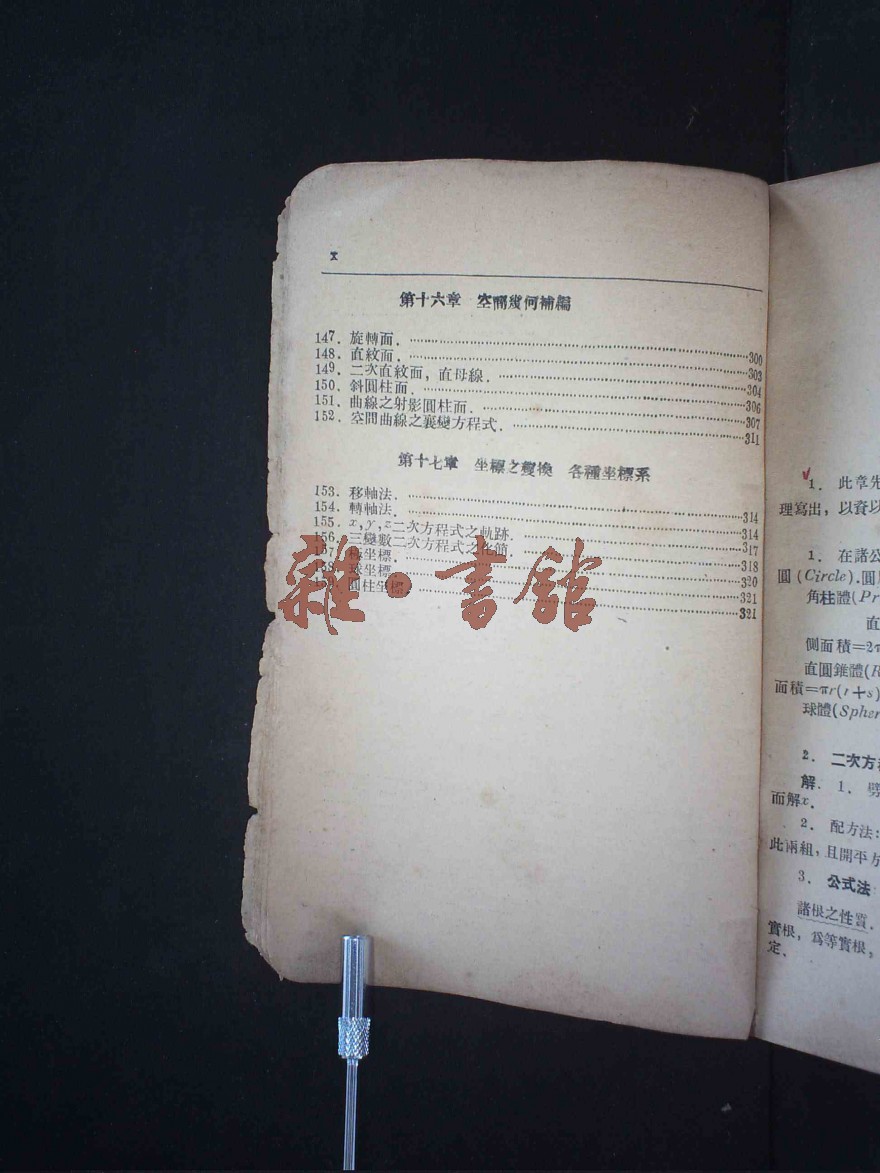 x
第十六章 空間幾何補編
147. 旋轉面. 300
148. 直紋面. 303
149. 二次直紋面, 直母線. 304
150. 斜圓柱面. 306
151. 曲線之射影圓柱面. 307
152. 空間曲線之襄變方程式. 311
第十七章 坐標之變換 各種坐標系
153. 移軸法. 314
154. 轉軸法. 314
155. x, y, z二次方程式之軌跡. 317
156. 三變數二次方程式之化簡. 318
157. 極坐標. 320
158. 球坐標. 321
159. 圓柱坐標. 321
雜·書館
1. 此章先
理寫出, 以資以
1. 在諸公
圓 (Circle). 圓
角柱體(Pr
直
側面積=2π
直圓錐體(R
面積=πr(r+s)
球體(Spher
2. 二次方
解. 1. 劈
而解x.
2. 配方法:
此兩組, 且開平方
3. 公式法
諸根之性質.
實根, 爲等實根,
定.